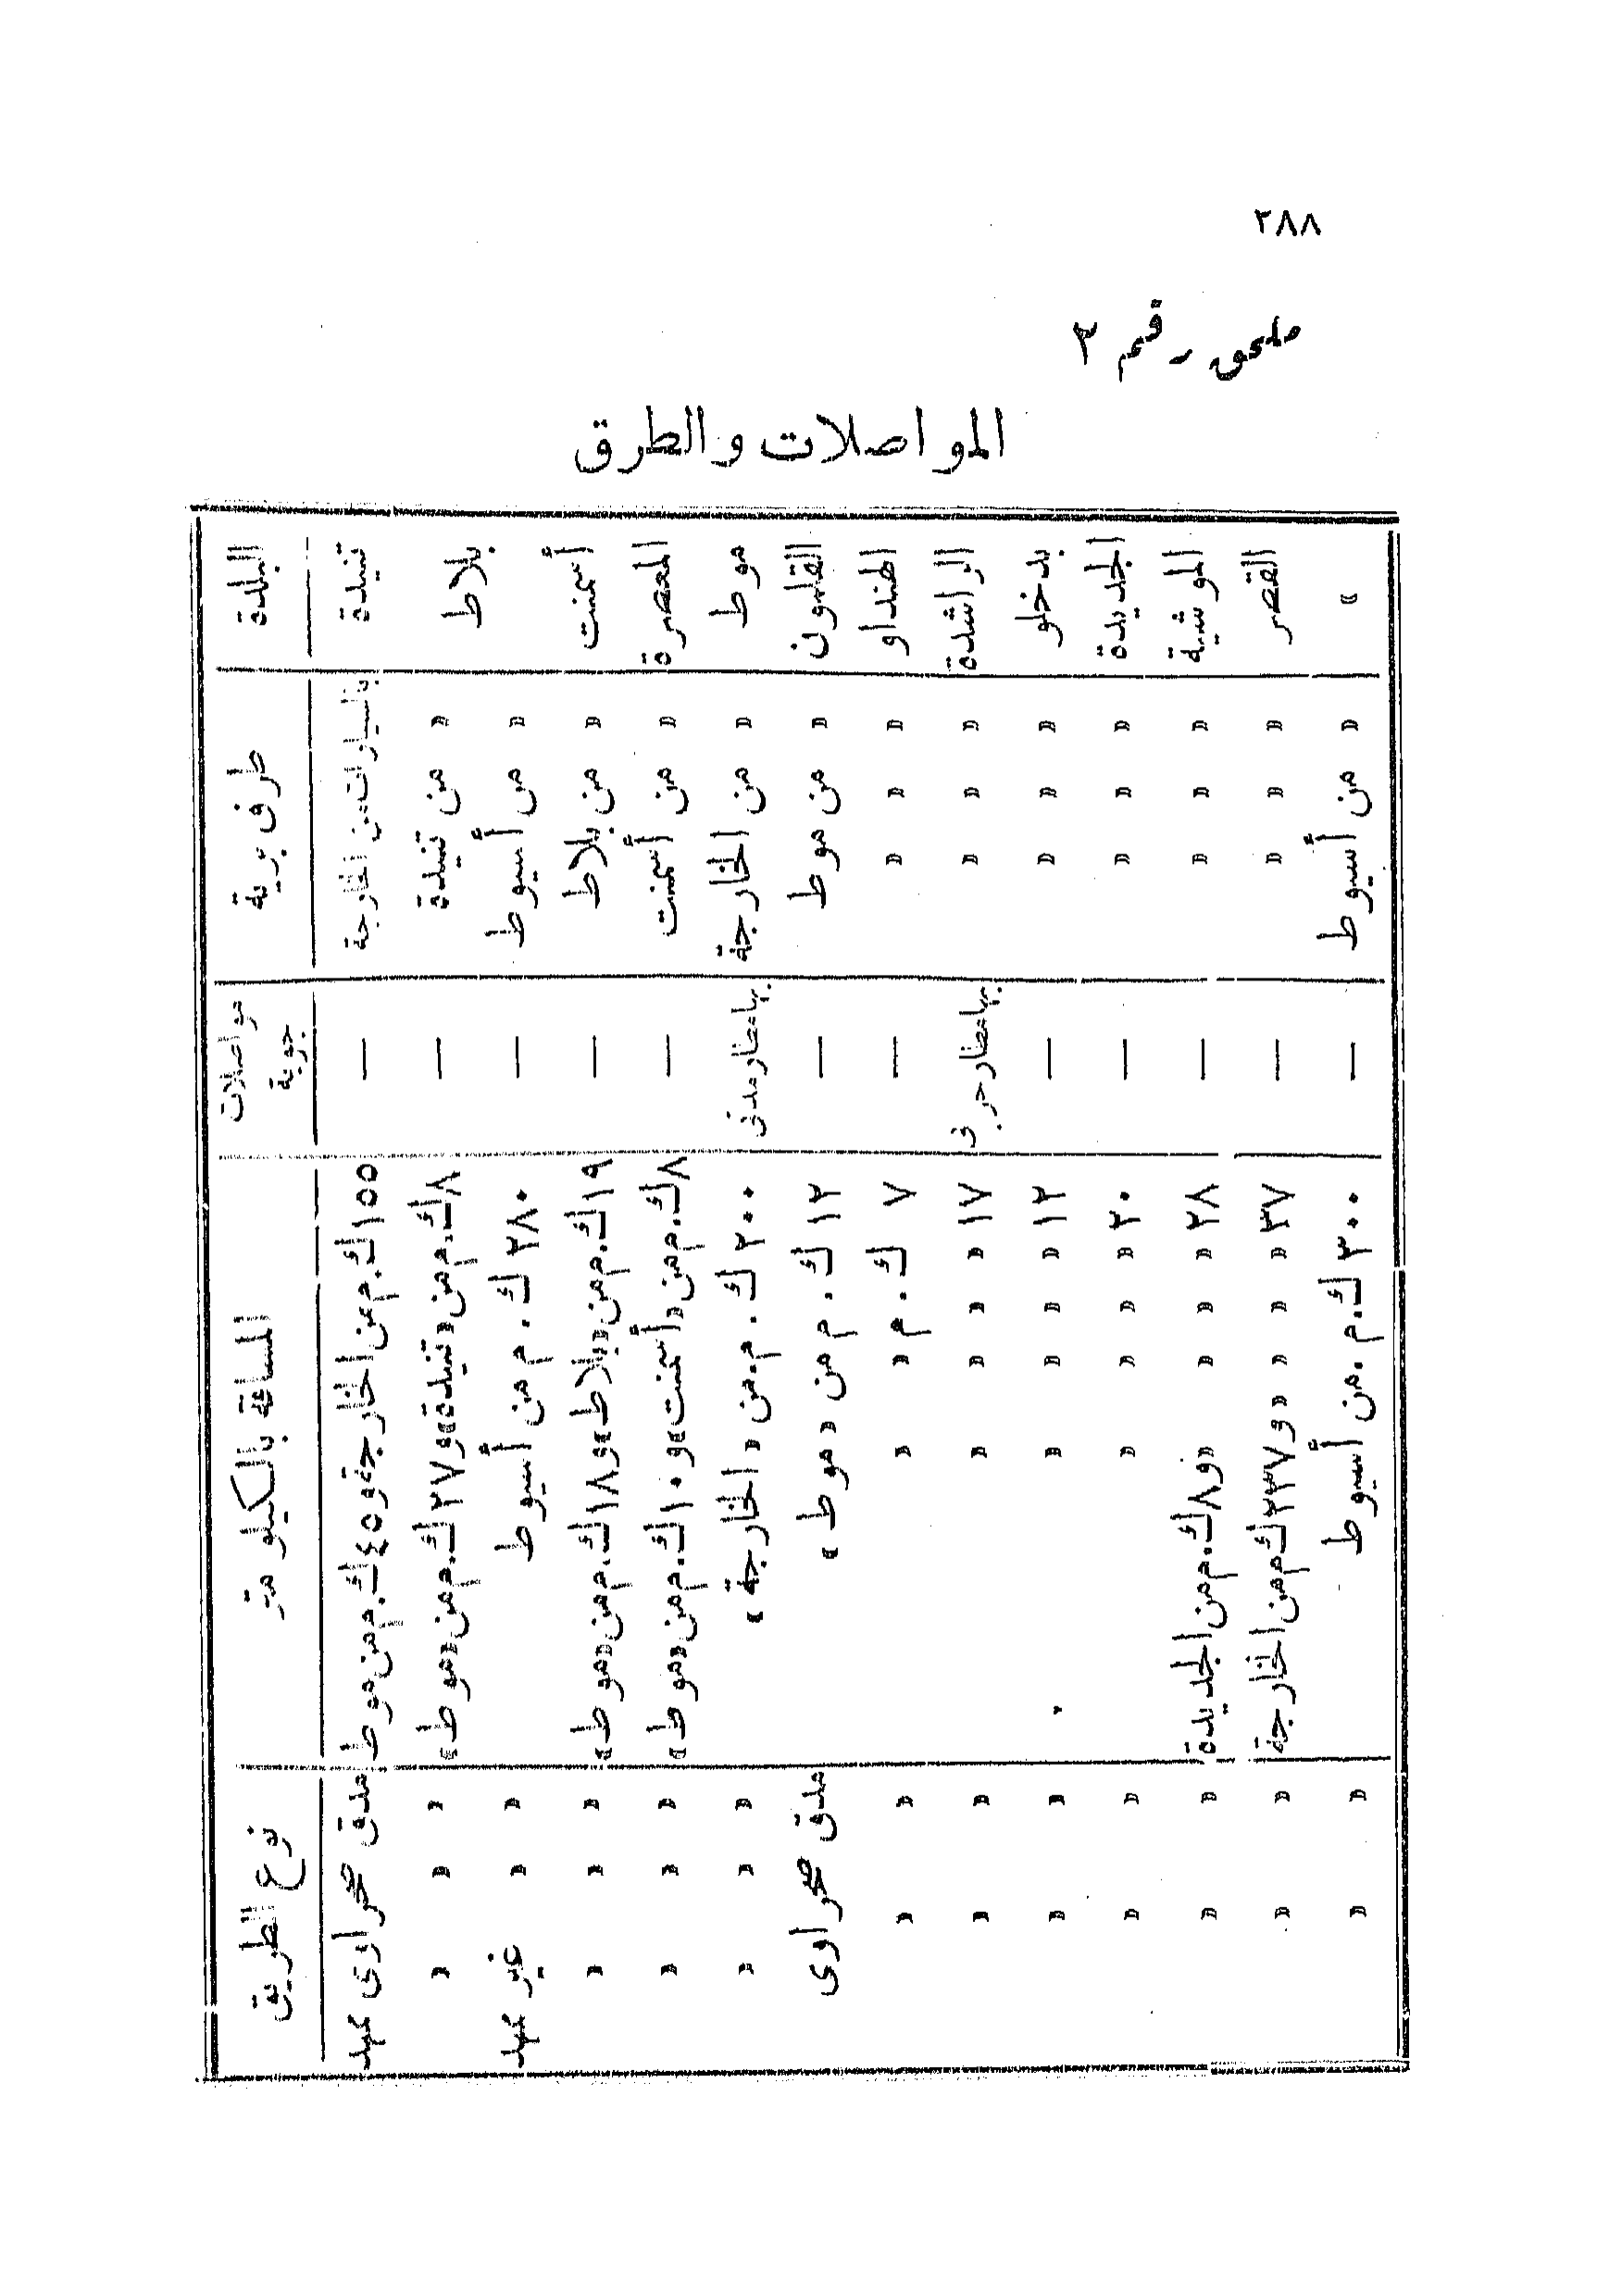 ٢٨٨
ملحق رقم ٢
المواصلات والطرق
البلدة طرق برية مواصلات جوية المسافة بالكيلو متر نوع الطريق
تنيدة بالسيارات من الخارجة — ١٥٥ ك.م من الخارجة و ٤٥ ك.م من موط مدق صحراوى ممهد
بلاط « من تنيدة — ٨ ك.م من «تنيدة» و ٢٧ ك.م من «موط» « « «
« من أسيوط — ٢٨٠ ك.م من أسيوط « « غير ممهد
أسمنت « من بلاط — ١٩ ك.م من «بلاط» و ١٨ ك.م من «موط» « « «
المعصرة « من أسمنت — ٨ ك.م من «أسمنت» و ١٠ ك.م من «موط» « « «
موط « من الخارجة بها مطار مدنى ٢٠٠ ك.م.من «الخارجة» « « «
القلمون « من موط — ١٢ ك.م من «موط» مدق صحراوى
الهنداو « « « — ٧ ك.م « « « «
الراشدة « « « بها مطار حربى ١٧ « « « « « «
بدخلو « « « — ١٢ « « « « « «
الجديدة « « « — ٢٠ « « « « « «
الموشية « « « — ٢٨ « « « «و ٨ ك.م من الجديدة « «
القصر « « « — ٣٧ « « « «و ٢٣٧ ك م من الخارجة « «
» « من أسيوط — ٣٠٠ ك.م.من أسيوط « «